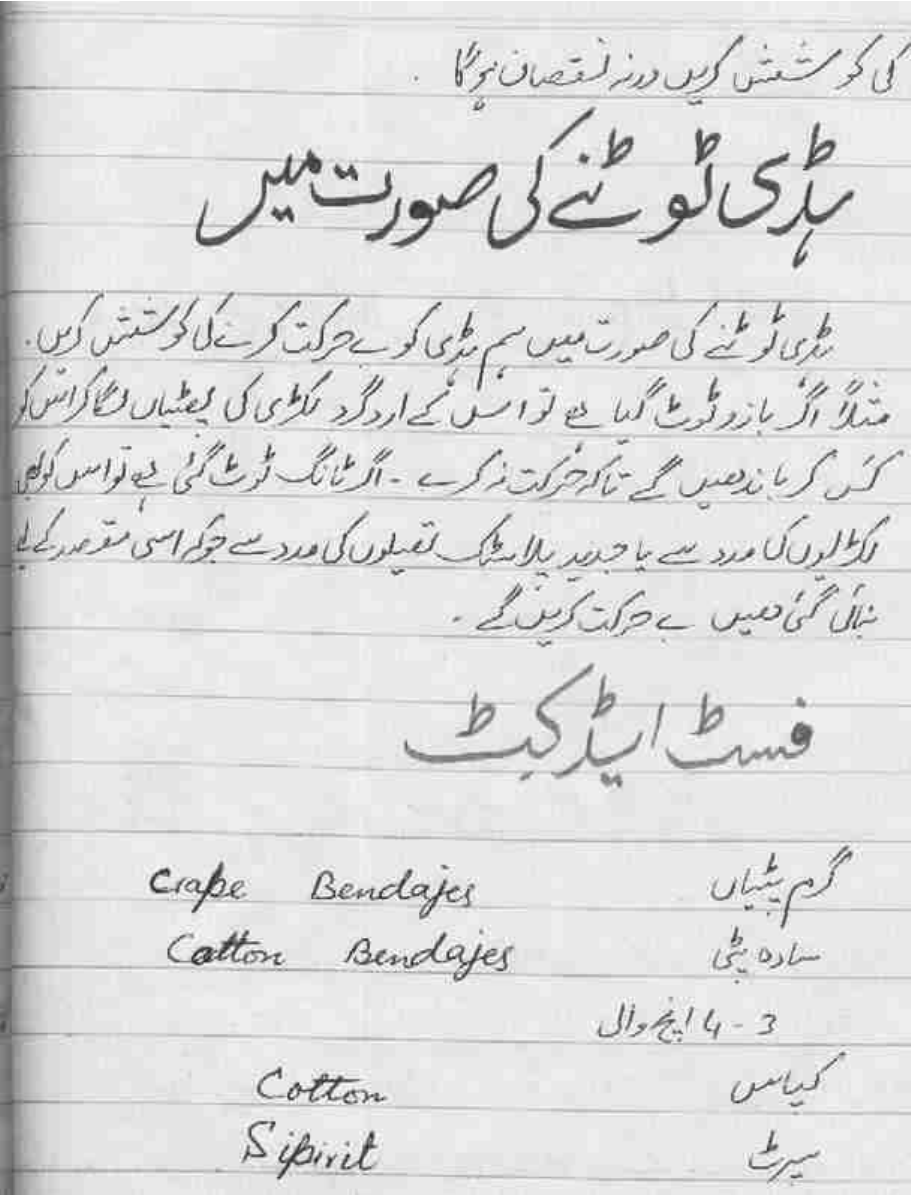 کی کوشش کریں ورنہ نقصان ہوگا .
ہڈی ٹوٹنے کی صورت میں
ہڈی ٹوٹنے کی صورت میں ہم ہڈی کو بے حرکت کرنے کی کوشش کریں .
مثلاً اگر بازو ٹوٹ گیا ہے تو اس کے اردگرد لکڑی کی پھٹیاں لگا کر اس کو
کس کر باندھیں گے تاکہ حرکت نہ کرے - اگر ٹانگ ٹوٹ گئی ہے تو اس کو بھی
لکڑیوں کی مدد سے یا جدید پلاسٹک تھیلوں کی مدد سے جو کہ اسی مقصد کے لیے
بنائی گئی ھیں بے حرکت کریں گے -
فسٹ ایڈ کٹ
گرم پٹیاں Crape Bendajes
سادہ پٹی Catton Bendajes
3 - 4 اینچ والی
کپاس Cotton
سپرٹ Sipirit